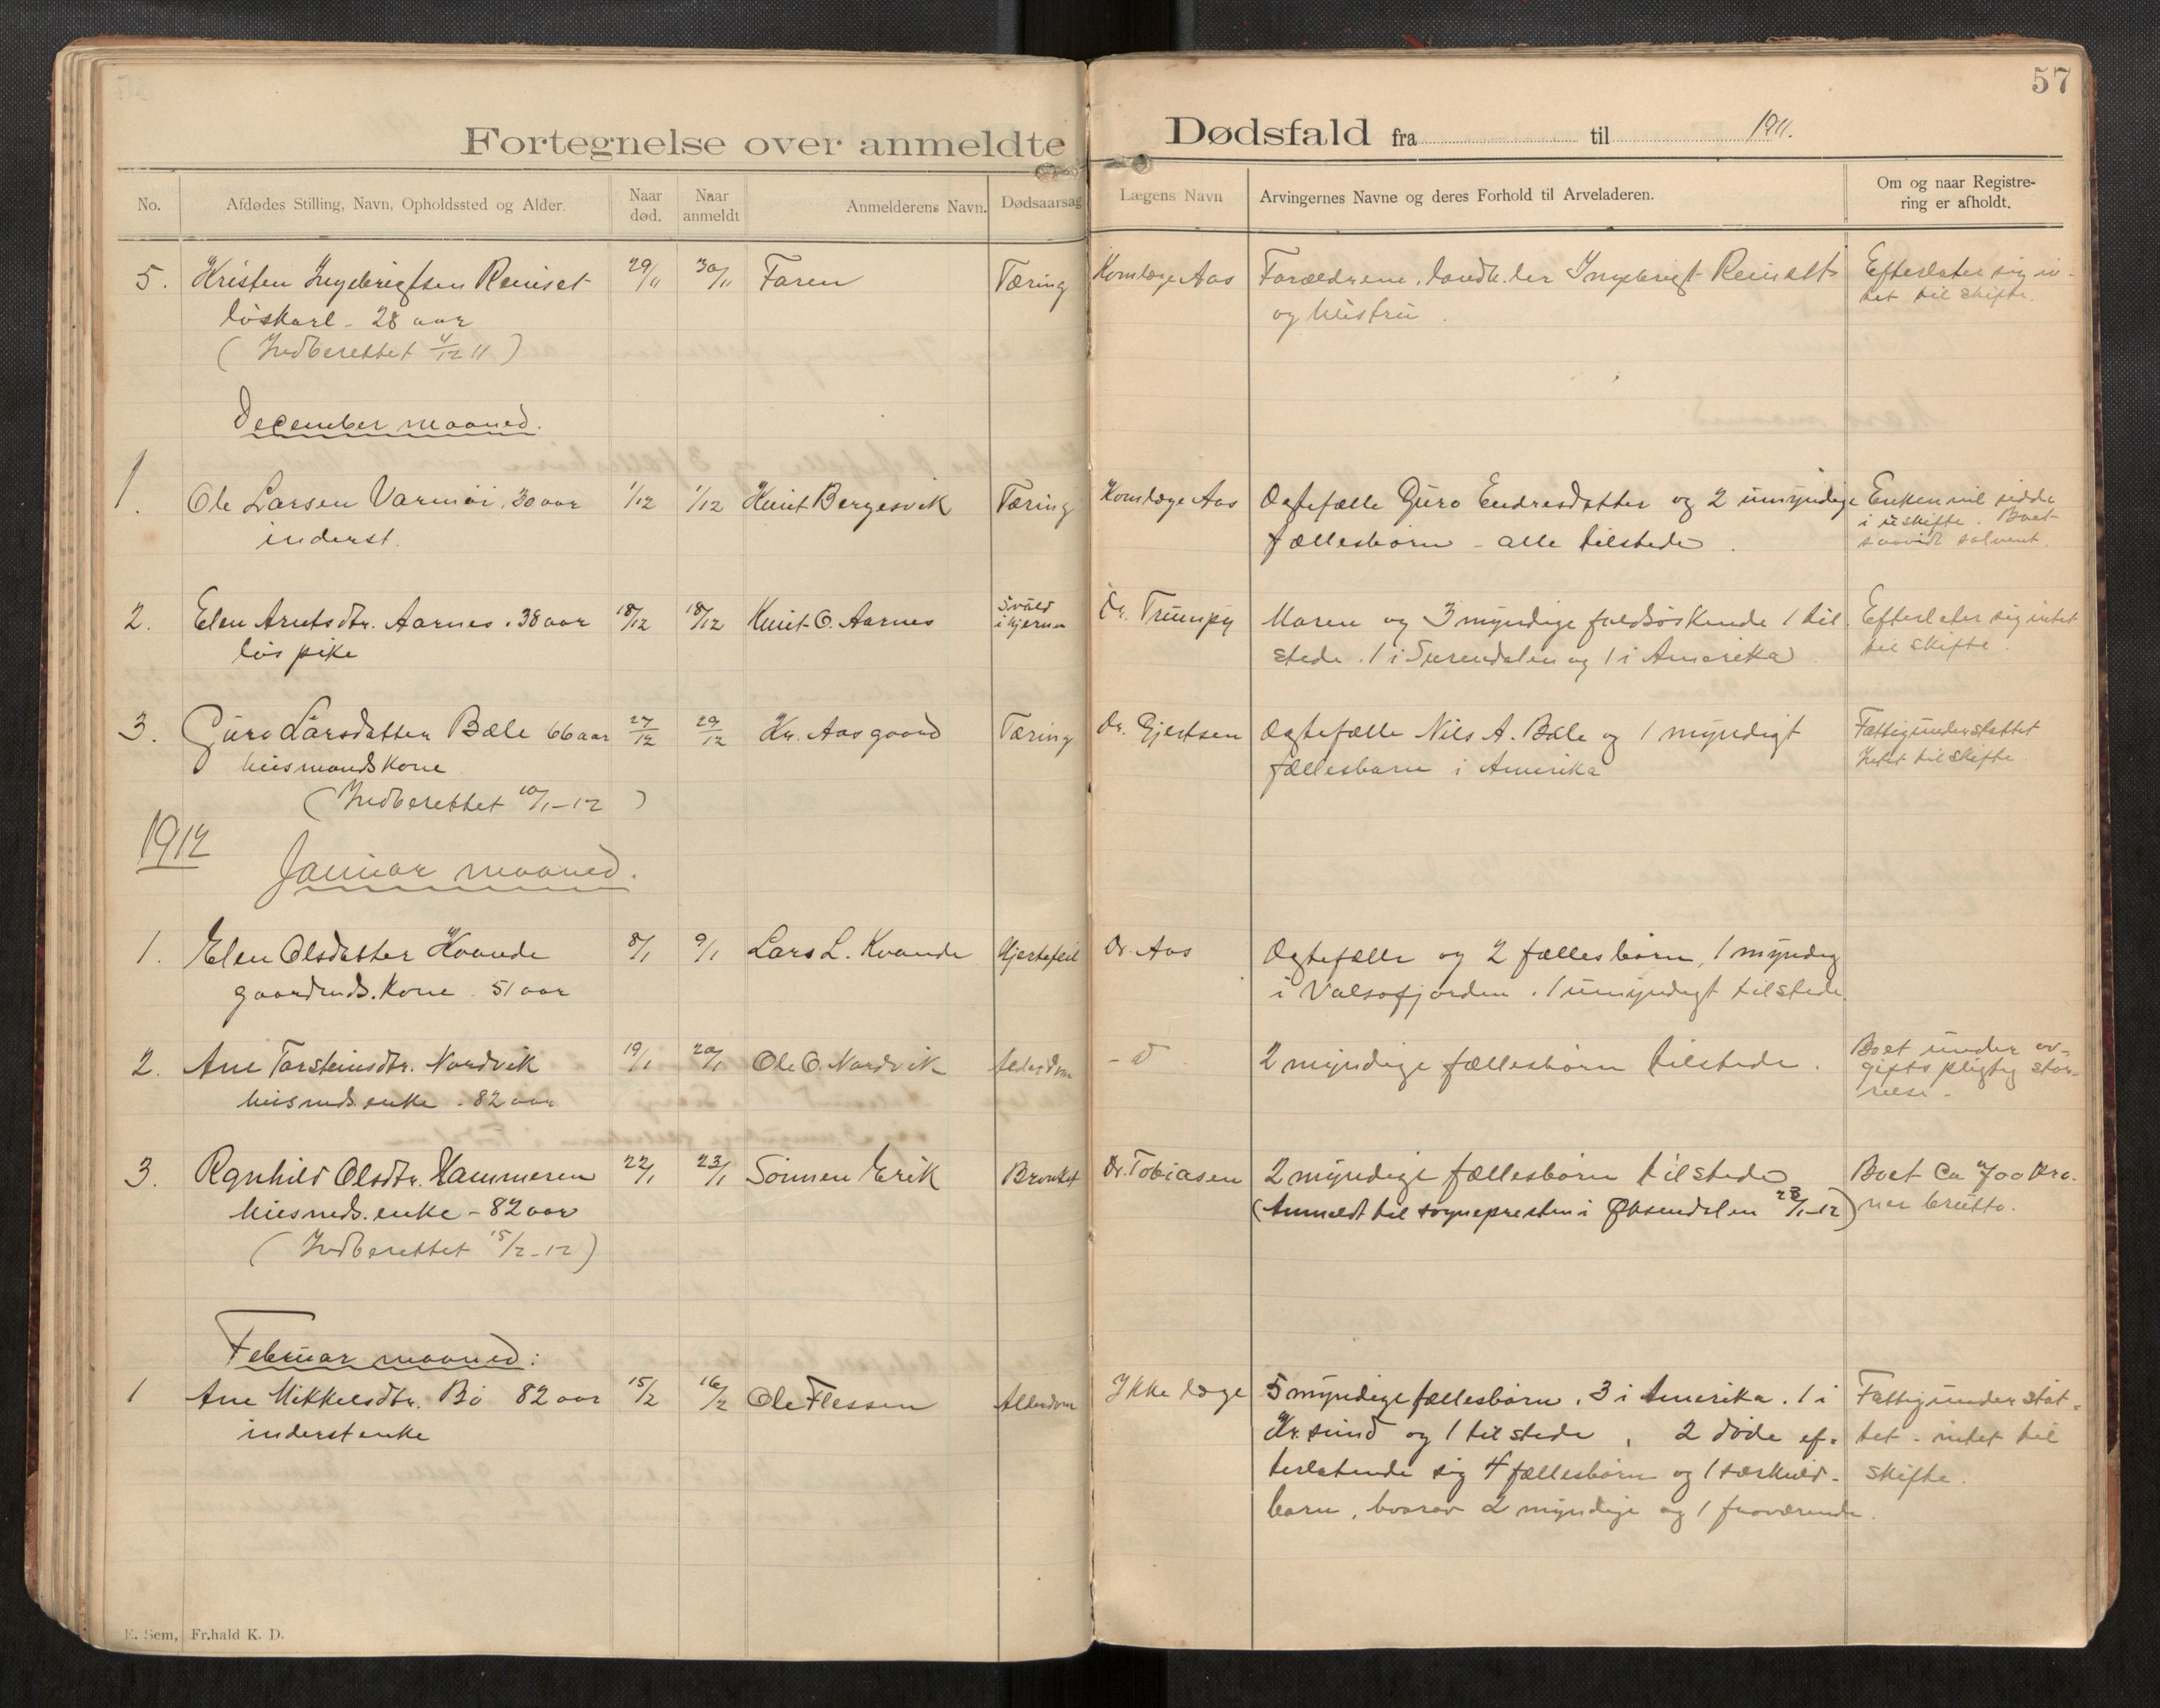 57
Fortegnelse over anmeldte Dødsfald fra til 1911.
No. Afdødes Stilling, Navn, Opholdssted og Alder. Naar død. Naar anmeldt Anmelderens Navn. Dødsaarsag Lægens Navn Arvingernes Navne og deres Forhold til Arveladeren. Om og naar Registrering er afholdt.
5. Kristen Ingebrigtsen Reinset 29/11 30/11 Faren Tæring Komlæge Aas Forældrene, Ingebrigt Reinset Efterlater sig in-
løskarl - 28 aar og hustru. tet til skifte.
(Indberettet 4/12 11)
December maaned.
1. Ole Larsen Varmøi, 30 aar 1/12 1/12 Knut Bergesvik Tæring Komlæge Aas Ægtefælle Guro Endresdatter og 2 umyndige Enken vil sidde
inderst. fællesbørn - alle tilstede. i uskifte. Boet
saavidt solvent.
2. Elen Arntsdtr. Aarnes. 38 aar 18/12 18/12 Knut O. Aarnes Svulst i hjernen Dr. Trumpy Moren og 3 myndige fuldsøskende 1 til Efterlater sig intet
løs pike stede. 1 i Surendalen og 1 i Amerika. til skifte.
3. Guro Larsdatter Bæle 66 aar 27/12 29/12 Kr. Aasgaard Tæring Dr. Gjertsen Ægtefælle Nils A. Bæle og 1 myndigt Fattigunderstøttet
husmandskone fællesbarn i Amerika Intet til skifte
(Indberettet 10/1-12)
1912
Januar maaned.
1. Elen Olsdatter Kvande 8/1 9/1 Lars L. Kvande Hjertefeil Dr. Aas Ægtefælle og 2 fællesbørn, 1 myndig
gaardmds. kone. 51 aar i Valsøfjorden. 1 umyndigt tilstede.
2. Ane Torsteinsdtr. Nordvik 19/1 20/1 Ole O. Nordvik Alderdom - d 2 myndige fællesbørn tilstede. Boet under av-
husmds. enke - 82 aar giftspligtig stør-
relse.
3. Ragnhild Olsdtr. Hammeren 22/1 23/1 Sønnen Erik Bronkit Dr. Tobiasen 2 myndige fællesbørn tilstede Boet ca 700 kro-
husmds. enke - 82 aar (Anmeldt til sognepresten i Øksendalen 23/1-12) ner brutto.
(Indberettet 15/2-12)
Februar maaned:
1 Ane Mikkelsdtr. Bø 82 aar 15/2 16/2 Ole Flessen Alderdom Ikke læge 5 myndige fællesbørn. 3 i Amerika. 1 i Fattigunderstøt-
inderst enke Kr.sund og 1 tilstede, 2 døde ef- tet - intet til
terlatende sig 4 fællesbørn og 1 særkuld- skifte.
barn, hvorav 2 myndige og 1 fraværende.
E. Sem, Fr.hald K. D.